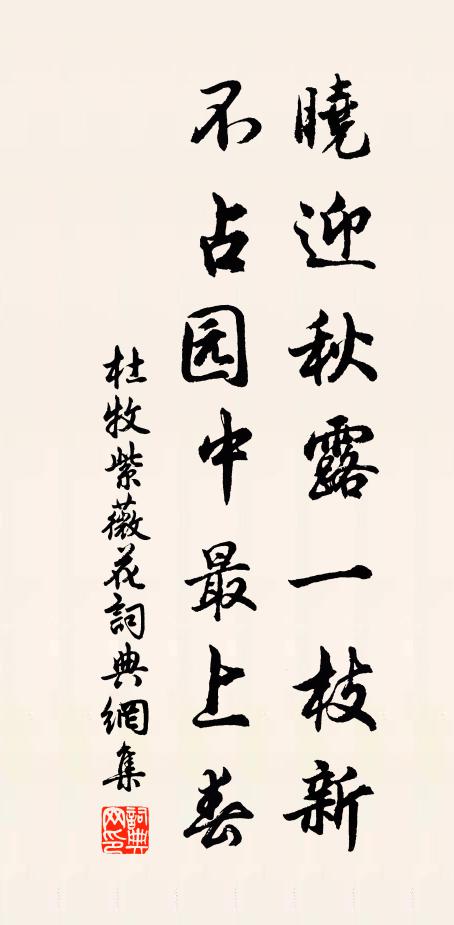 曉迎秋露一枝新
不占园中最上春
杜牧紫薇花詞典網集
詞典网印